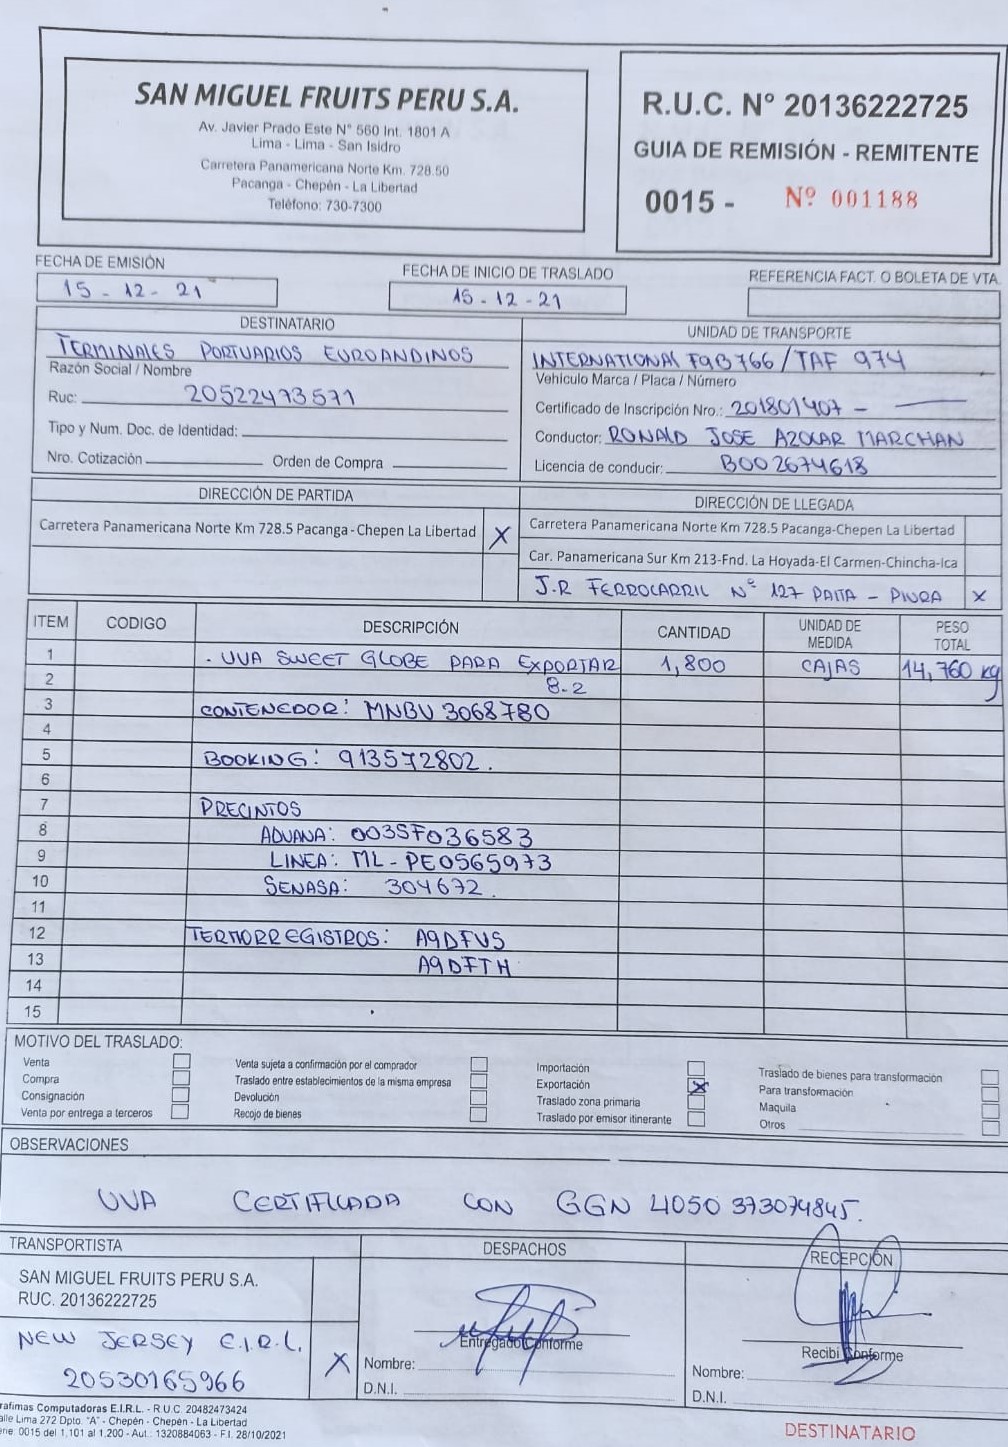 SAN MIGUEL FRUITS PERU S.A.
Av. Javier Prado Este N° 560 Int. 1801 A
Lima - Lima - San Isidro
Carretera Panamericana Norte Km. 728.50
Pacanga - Chepén - La Libertad
Teléfono: 730-7300
R.U.C. N° 20136222725
GUIA DE REMISIÓN - REMITENTE
0015 - Nº 001188
FECHA DE EMISIÓN
15 - 12 - 21
FECHA DE INICIO DE TRASLADO
15 - 12 - 21
REFERENCIA FACT. O BOLETA DE VTA.
DESTINATARIO
TERMINALES PORTUARIOS EUROANDINOS
Razón Social / Nombre
Ruc: 20522473571
Tipo y Num. Doc. de Identidad:
Nro. Cotización Orden de Compra
UNIDAD DE TRANSPORTE
INTERNATIONAL F9B766 / TAF 974
Vehículo Marca / Placa / Número
Certificado de Inscripción Nro.: 201801407 -
Conductor: RONALD JOSE AZOCAR MARCHAN
Licencia de conducir: B002674618
DIRECCIÓN DE PARTIDA
Carretera Panamericana Norte Km 728.5 Pacanga-Chepen La Libertad X
DIRECCIÓN DE LLEGADA
Carretera Panamericana Norte Km 728.5 Pacanga-Chepen La Libertad
Car. Panamericana Sur Km 213-Fnd. La Hoyada-El Carmen-Chincha-Ica
J.R FERROCARRIL N° 127 PAITA - PIURA X
ITEM CODIGO DESCRIPCIÓN CANTIDAD UNIDAD DE MEDIDA PESO TOTAL
1 . UVA SWEET GLOBE PARA EXPORTAR 1,800 CAJAS 14,760 kg
2 8.2
3 CONTENEDOR: MNBU 3068780
4
5 BOOKING: 913572802.
6
7 PRECINTOS
8 ADUANA: 0035F036583
9 LINEA: ML-PE0565973
10 SENASA: 304672.
11
12 TERMORREGISTROS: A9DFVS
13 A9DFTH
14
15
MOTIVO DEL TRASLADO:
Venta
Compra
Consignación
Venta por entrega a terceros
Venta sujeta a confirmación por el comprador
Traslado entre establecimientos de la misma empresa
Devolución
Recojo de bienes
Importación
Exportación X
Traslado zona primaria
Traslado por emisor itinerante
Traslado de bienes para transformación
Para transformación
Maquila
Otros
OBSERVACIONES
UVA CERTIFICADA CON GGN 4050 373074845.
TRANSPORTISTA
SAN MIGUEL FRUITS PERU S.A.
RUC. 20136222725
NEW JERSEY E.I.R.L.
20530165966 X
DESPACHOS
Entregado Conforme
Nombre:
D.N.I.
RECEPCIÓN
Recibi Conforme
Nombre:
D.N.I.
rafimas Computadoras E.I.R.L. - R.U.C. 20482473424
alle Lima 272 Dpto. "A" - Chepén - Chepén - La Libertad
erie: 0015 del 1,101 al 1,200 - Aut.: 1320884063 - F.I. 28/10/2021
DESTINATARIO